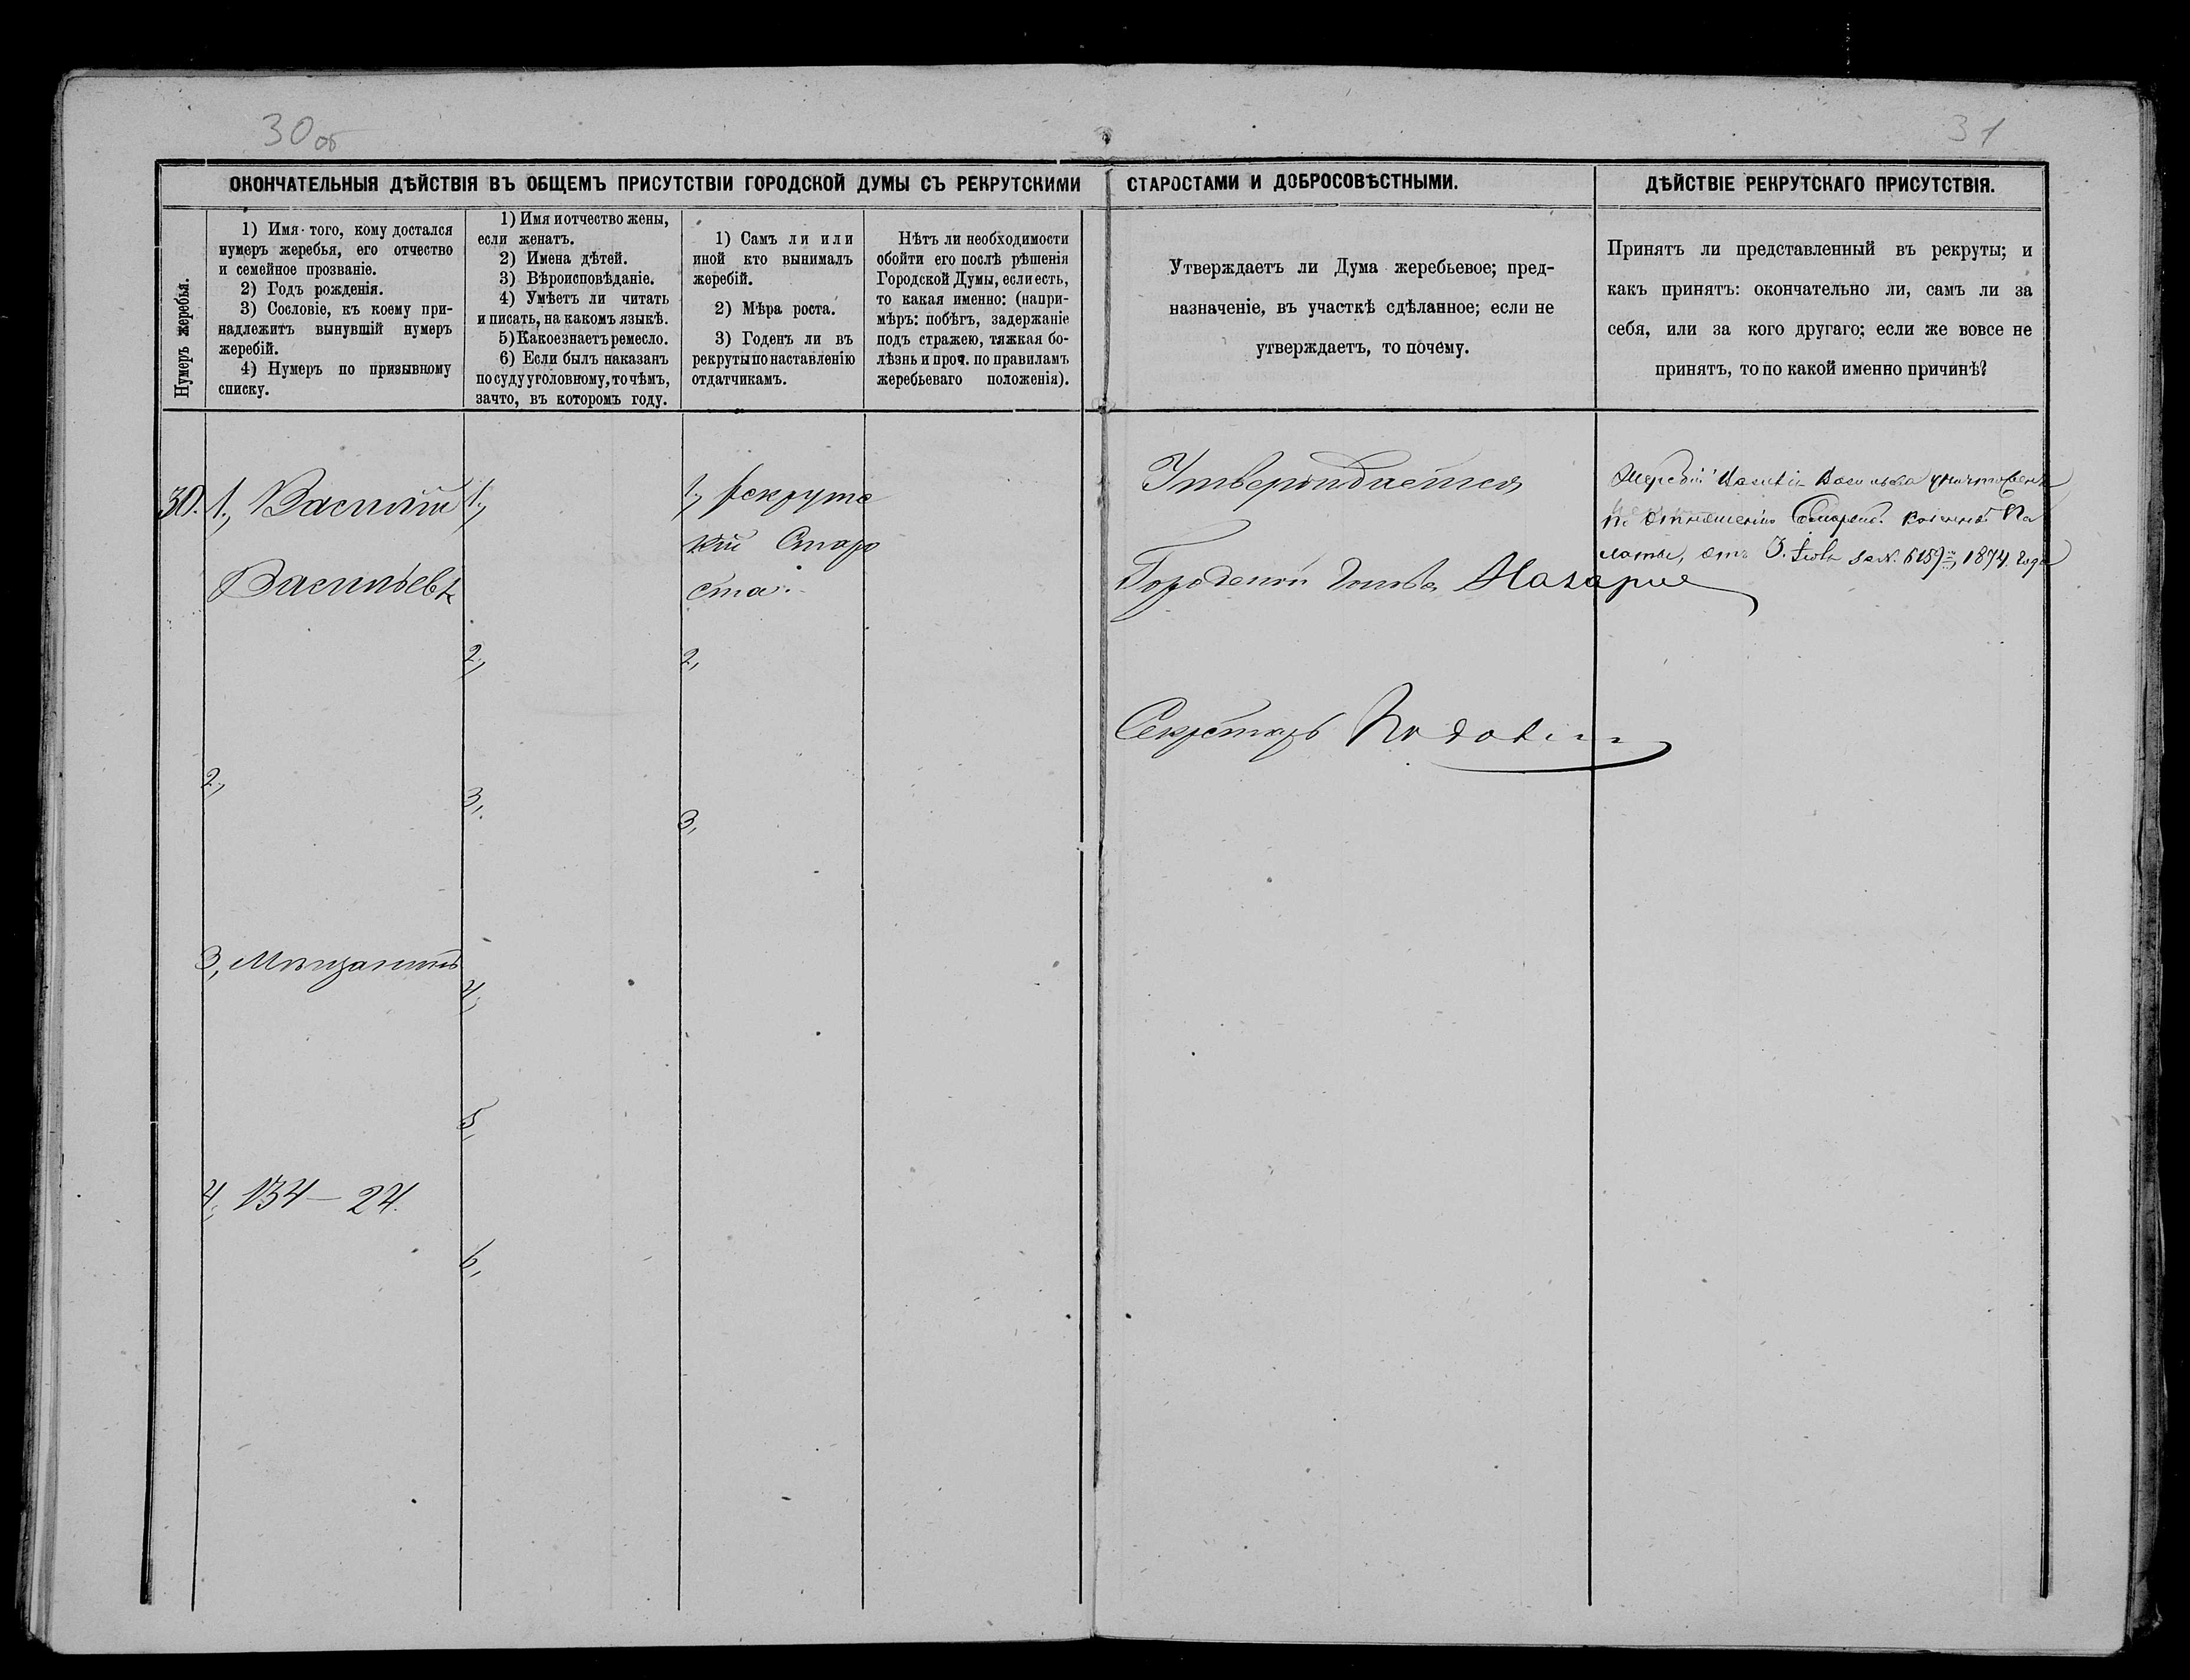 30об
31
ОКОНЧАТЕЛЬНЫЯ ДѢЙСТВІЯ ВЪ ОБЩЕМЪ ПРИСУТСТВІИ ГОРОДСКОЙ ДУМЫ СЪ РЕКРУТСКИМИ СТАРОСТАМИ И ДОБРОСОВѢСТНЫМИ.
ДѢЙСТВІЕ РЕКРУТСКАГО ПРИСУТСТВІЯ.
Нумеръ жеребья.
1) Имя того, кому достался
нумеръ жеребья, его отчество
и семейное прозваніе.
2) Годъ рожденія.
3) Сословіе, къ коему при-
надлежитъ вынувшій нумеръ
жеребій.
4) Нумеръ по призывному
списку.
1) Имя и отчество жены,
если женатъ.
2) Имена дѣтей.
3) Вѣроисповѣданіе.
4) Умѣетъ ли читать
и писать, на какомъ языкѣ.
5) Какое знаетъ ремесло.
6) Если былъ наказанъ
по суду уголовному, то чѣмъ,
за что, въ которомъ году.
1) Самъ ли или
иной кто вынималъ
жеребій.
2) Мѣра роста.
3) Годенъ ли въ
рекруты по наставленію
отдатчикамъ.
Нѣтъ ли необходимости
обойти его послѣ рѣшенія
Городской Думы, если есть,
то какая именно: (напри-
мѣръ: побѣгъ, задержаніе
подъ стражею, тяжкая бо-
лѣзнь и проч. по правиламъ
жеребьеваго положенія).
Утверждаетъ ли Дума жеребьевое; пред-
назначеніе, въ участкѣ сдѣланное; если не
утверждаетъ, то почему.
Принятъ ли представленный въ рекруты; и
какъ принятъ: окончательно ли, самъ ли за
себя, или за кого другаго; если же вовсе не
принятъ, то по какой именно причинѣ?
30.
1, Василій
Васильевъ
2,
3, Мѣщанинъ
4, 134 — 24.
1,
2,
3,
4,
5,
6,
1, рекрутс
кій Старо
ста.
2,
3,
Утверждается
Городской Голова Назаров
Секретарь
Жеребій Василія Васильева уничтоженъ
по отношенію Самарской Казенной Па
латы, отъ 3. за №. 6159, 1874 года